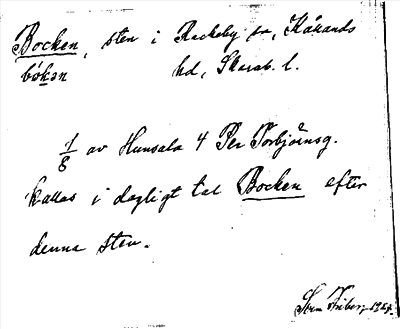 Bocken, sten i Rackeby sn, Kållands
bo̊kən hd, Skarab. l.
1/8 av Hunsala 4 Per Torbjörnsg.
kallas i dagligt tal Bocken efter
denna sten.
Sven Friberg 1929.